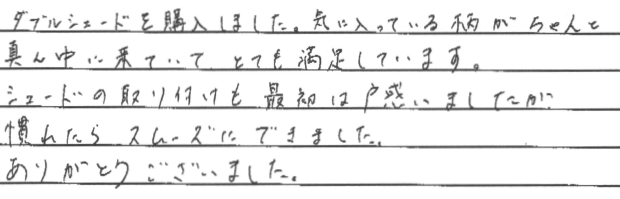 ダブルシェードを購入しました。気に入っている柄がちゃんと
真ん中に来ていて とても満足しています。
シェードの取り付けも 最初は戸惑いましたが
慣れたら スムーズにできました。
ありがとうございました。